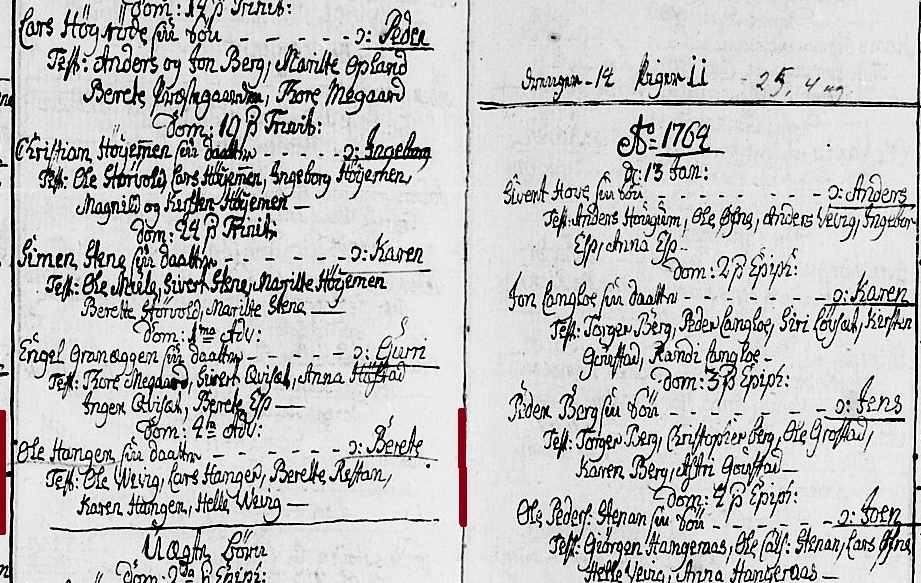 Dom: 14 p Trinit:
Lars Höy sin Sön - - - - - ɔ: Peder
Test: Anders og Jon Berg, Maritte Opland
Berete Thore Megaard
Dom: 19 p Trinit:
Christian Höyemen sin daatter - - - - ɔ: Ingeborg
Test: Ole Störvold, Lars Höyemen, Ingeborg Höyemen,
Magnild og Kirsten Höyemen —
Dom: 24 p Trinit:
Simen Stene sin daatter - - - - ɔ: Karen
Test: Ole Muila, Sivert Stene, Maritte Höyemen
Berette Störvold, Maritte Stene
Dom: 1ma Adv:
Engel Granæggen sin daatter - - - - ɔ: Gurri
Test: Thore Megaard, Sivert Qvisat, Anna
Ingen Qvisat, Berete Esp
Dom: 4ta Adv:
Ole Hangen sin daatter - - - - ɔ: Berette
Test: Ole Wevig, Lars Hangen, Berette Restan,
Karen Hangen, Helle Wevig —
Uægte Börn
Dom: 2da p Epiph:
Drenger - 14 Piger 11 - 25,
Ao 1764
d: 13 Jan:
Sivert Hove sin Sön - - - - ɔ: Anders
Test: Anders Ole Anders Wevig, Ingebor
Esp, Anna Esp -
Dom: 2 p Epiph:
Jon Langloe sin daatter - - - - - ɔ: Karen
Test: Torger Berg, Peder Langloe, Siri Kirsten
Randi Langloe -
Dom: 3 p Epiph:
Peder Berg sin Sön - - - - - ɔ: Jens
Test: Torger Berg, Christopher Berg, Ole
Karen Berg,
Dom: 4 p Epiph:
Ole Peders: Stenan sin Sön - - - - ɔ: Joen
Test: Giörgen Hangeraas, Ole Stenan, Lars
Helle Wevig, Anna Hangeraas —